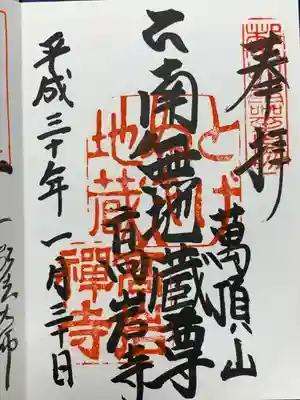 奉拝
萬頂山
南無地蔵尊
高岩寺
平成三十年一月三十日
とげぬき
地蔵
高岩
禪寺